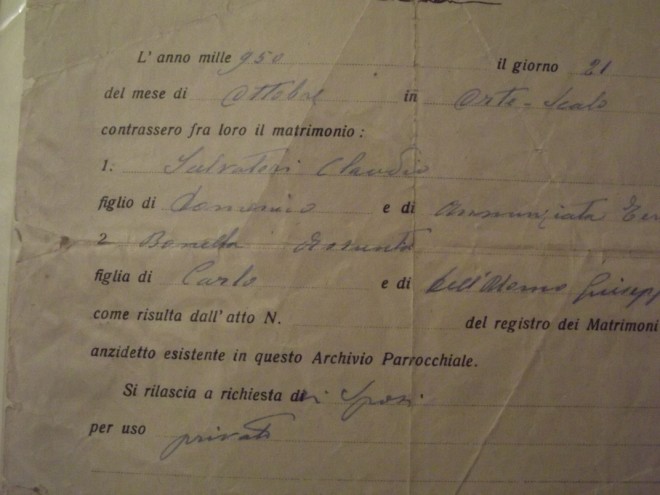 L'anno mille 950 il giorno 21
del mese di Ottobre in Orte-Scalo
contrassero fra loro il matrimonio:
1: Salvatori Claudio
figlio di Domenico e di Annunziata
2 Assunta
figlia di Carlo e di
come risulta dall'atto N. del registro dei Matrimoni
anzidetto esistente in questo Archivio Parrocchiale.
Si rilascia a richiesta di Sposi
per uso privato